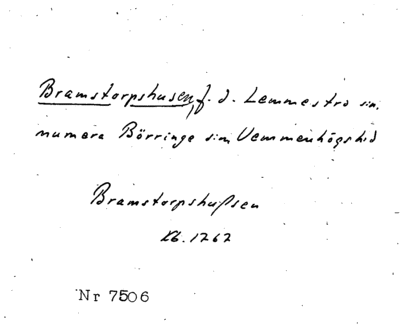 Bramstorpshusen, f. d. Lemmestro sn.
numera Börringe sn Vemmenhögs hd
Bramstorpshußen
Kb. 1767
Nr 7506